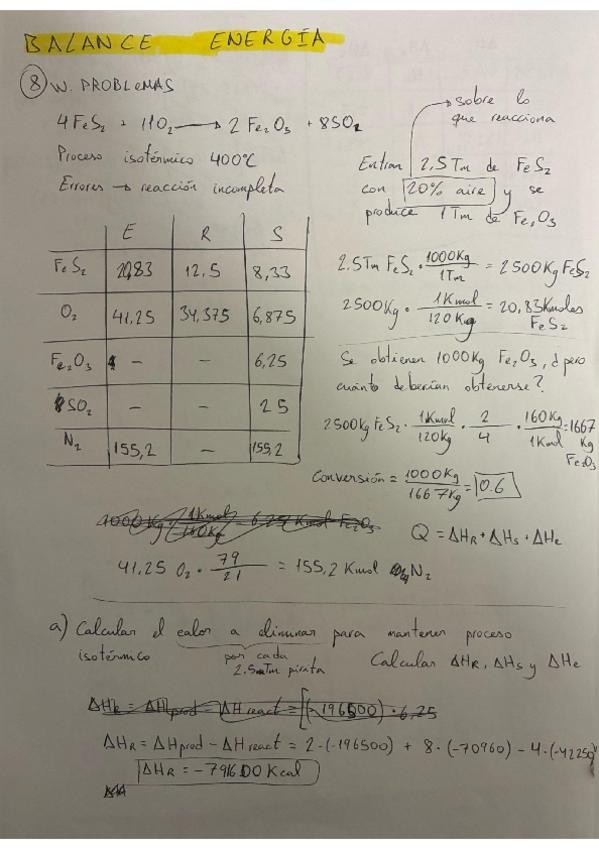 BALANCE ENERGÍA
8 W. PROBLEMAS
4FeS₂ + 11O₂ → 2 Fe₂O₃ + 8SO₂
Proceso isotérmico 400ºC
Errores → reacción incompleta
→ sobre lo
que reacciona
Entran 2,5Tm de FeS₂
con 20% aire y se
produce 1Tm de Fe₂O₃
E R S
FeS₂ 20,83 12,5 8,33
O₂ 41,25 34,375 6,875
Fe₂O₃ - - 6,25
SO₂ - - 25
N₂ 155,2 - 155,2
2.5Tm FeS₂ · 1000Kg / 1Tm = 2500Kg FeS₂
2500Kg · 1Kmol / 120Kg = 20,83Kmoles
FeS₂
Se obtienen 1000Kg Fe₂O₃, ¿pero
cuánto deberían obtenerse?
2500Kg FeS₂ · 1Kmol / 120Kg · 2 / 4 · 160Kg / 1Kmol = 1667
Kg
Fe₂O₃
Conversión = 1000Kg / 1667Kg = 0.6
1000 Kg · 1Kmol / 160Kg = 6,25 Kmol Fe₂O₃
Q = ΔHR + ΔHs + ΔHe
41,25 O₂ · 79 / 21 = 155,2 Kmol N₂
a) Calcular el calor a eliminar para mantener proceso
isotérmico
por cada
2.5Tm pirita
Calcular ΔHR, ΔHs y ΔHe
ΔHR = ΔHprod - ΔHreact = [(-196500) · 6.25
ΔHR = ΔHprod - ΔHreact = 2·(-196500) + 8·(-70960) - 4·(-42250)
ΔHR = -791600 Kcal